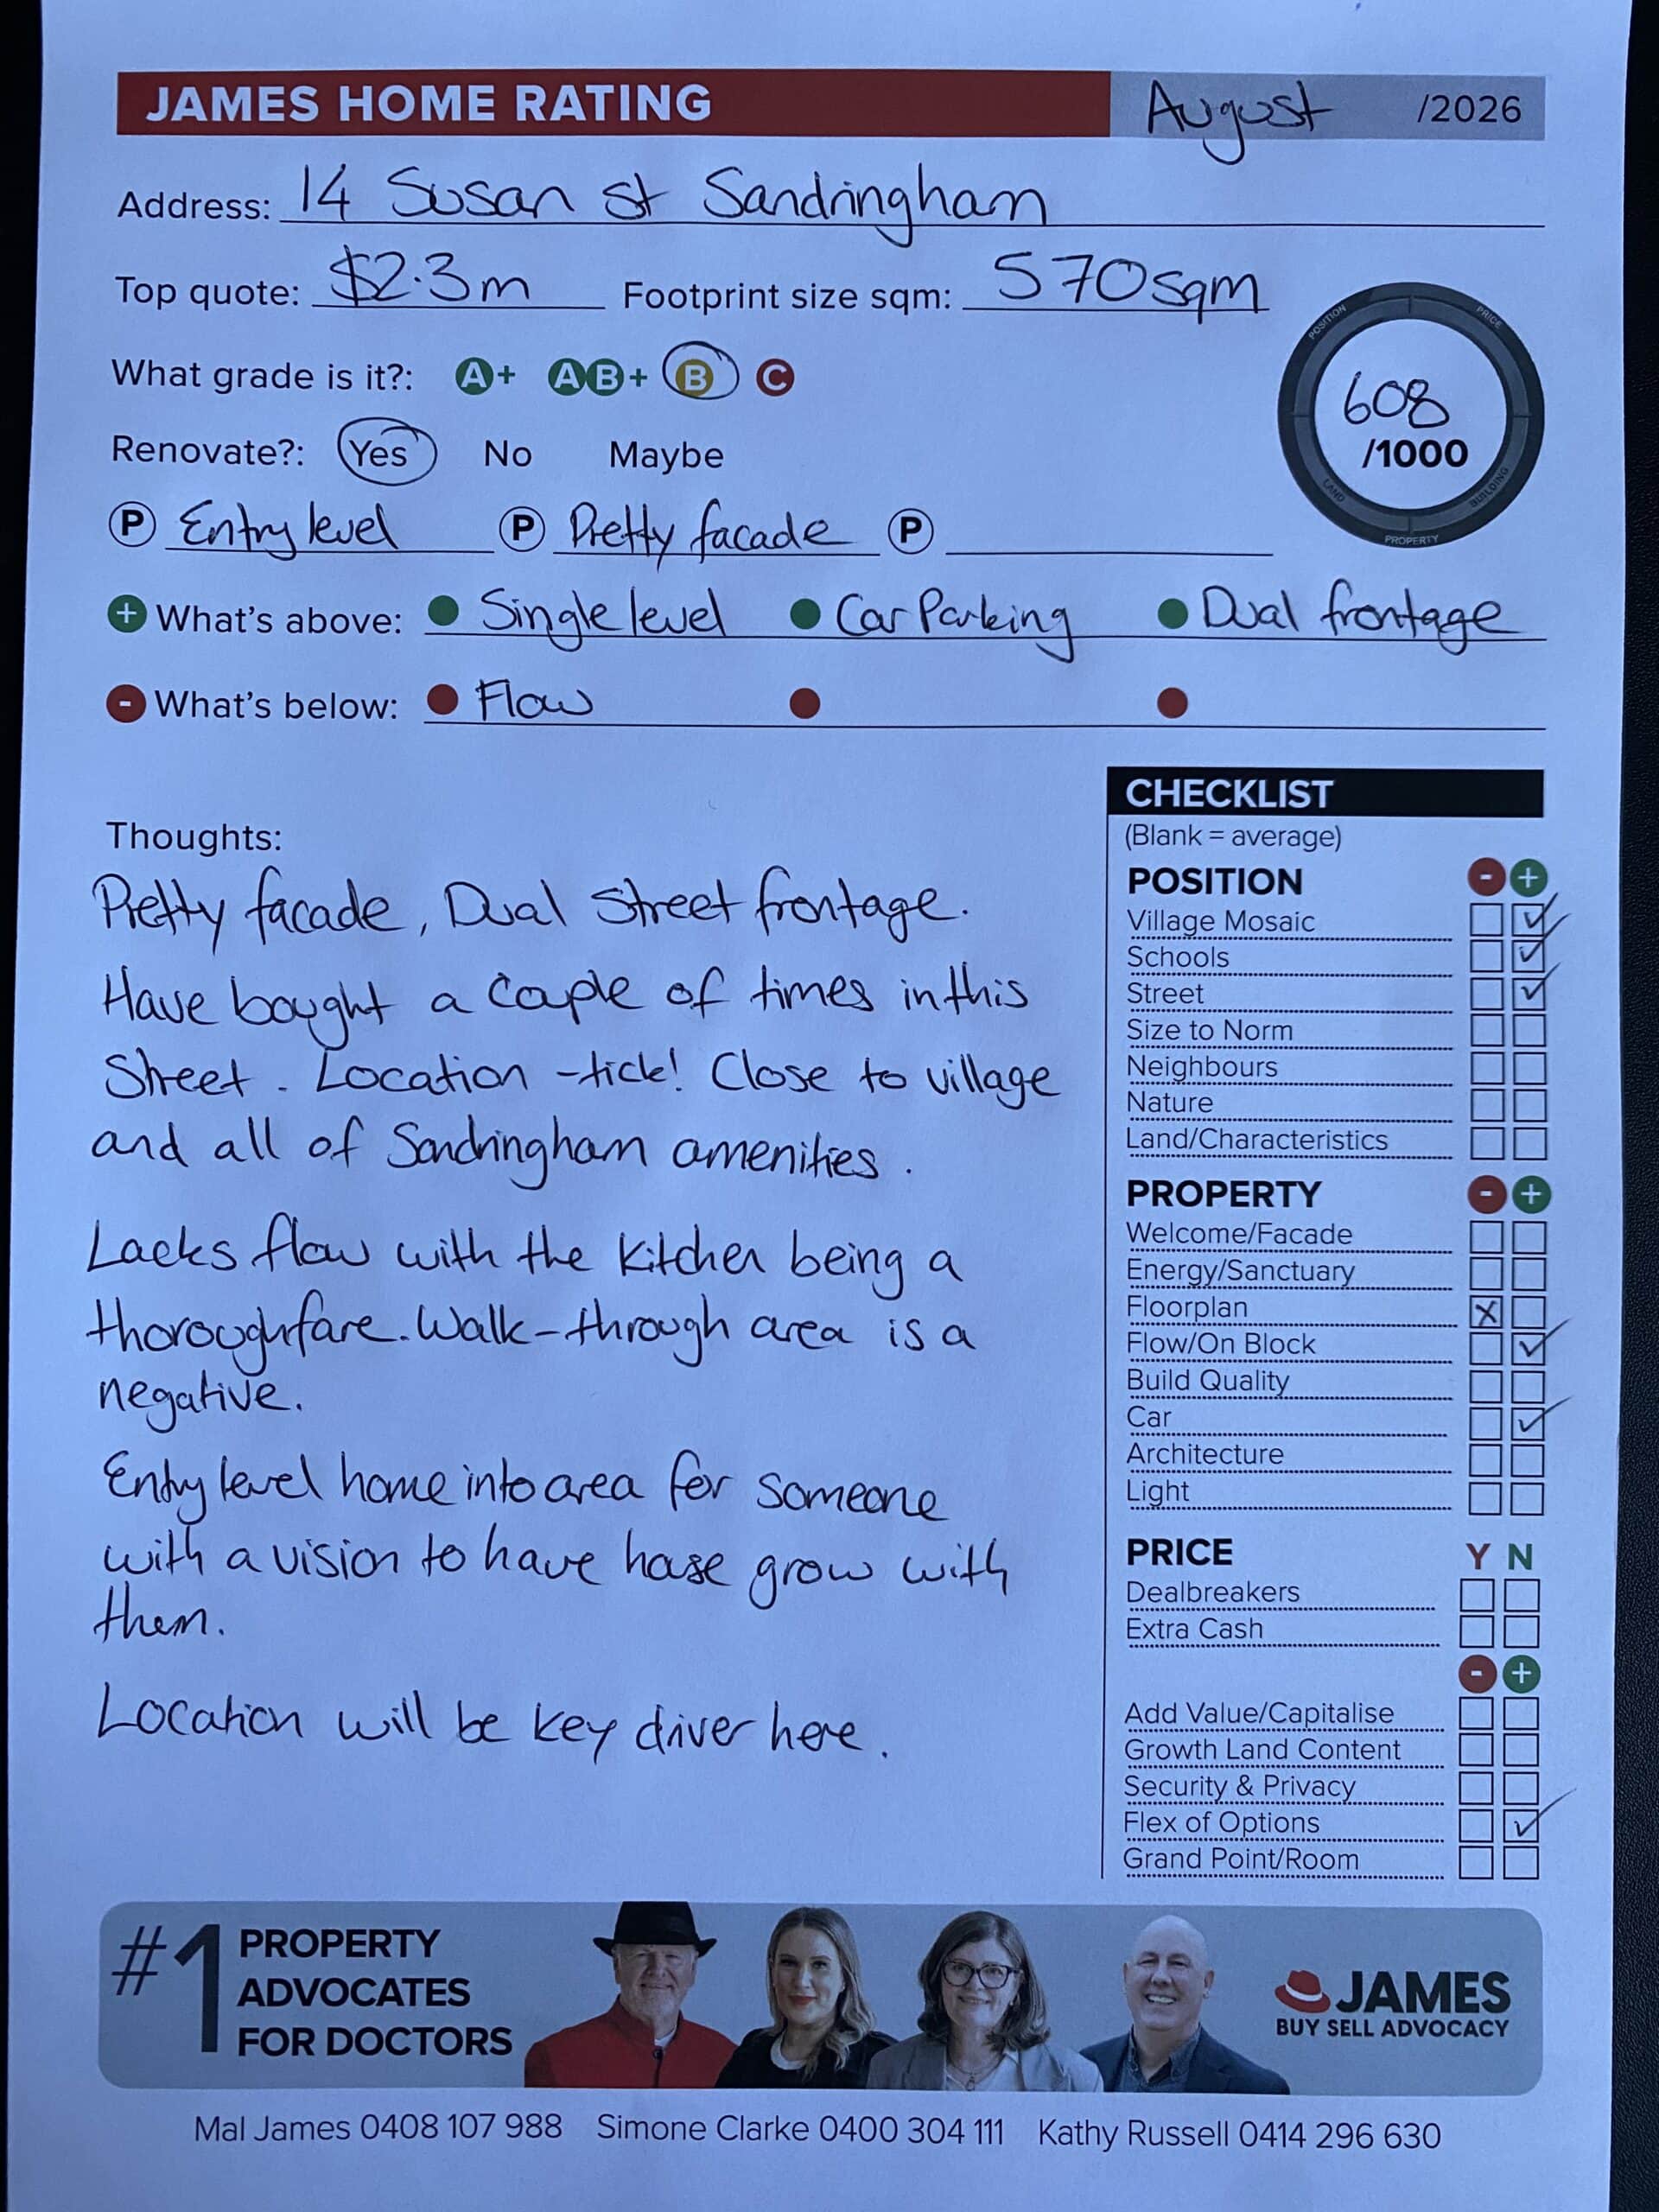 JAMES HOME RATING August /2026
Address: 14 Susan St Sandringham
Top quote: $2.3m Footprint size sqm: 570sqm
POSITION PRICE
608
/1000
LAND BUILDING
PROPERTY
What grade is it?: A+ AB+ B C
Renovate?: Yes No Maybe
P Entry level P Pretty facade P
+ What's above: Single level Car Parking Dual frontage
- What's below: Flow
Thoughts:
Pretty facade, Dual Street frontage.
Have bought a couple of times in this
Street. Location -tick! Close to village
and all of Sandringham amenities.
Lacks flow with the kitchen being a
thoroughfare. Walk-through area is a
negative.
Entry level home into area for someone
with a vision to have hose grow with
them.
Location will be key driver here.
CHECKLIST
(Blank = average)
POSITION - +
Village Mosaic ✓
Schools ✓
Street ✓
Size to Norm
Neighbours
Nature
Land/Characteristics
PROPERTY - +
Welcome/Facade
Energy/Sanctuary
Floorplan X
Flow/On Block ✓
Build Quality
Car ✓
Architecture
Light
PRICE Y N
Dealbreakers
Extra Cash
- +
Add Value/Capitalise
Growth Land Content
Security & Privacy
Flex of Options ✓
Grand Point/Room
#1 PROPERTY
ADVOCATES
FOR DOCTORS
JAMES
BUY SELL ADVOCACY
Mal James 0408 107 988 Simone Clarke 0400 304 111 Kathy Russell 0414 296 630